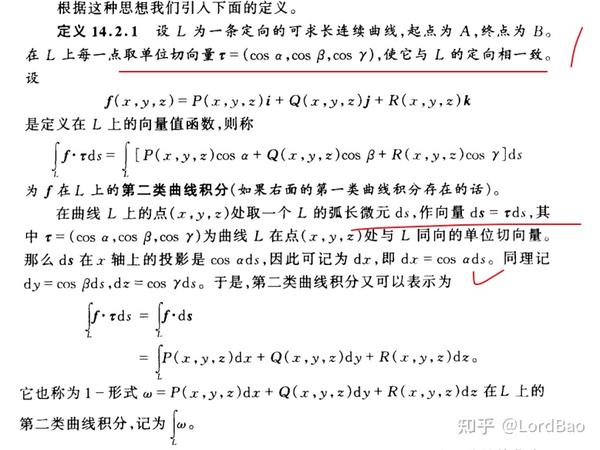 根据这种思想我们引入下面的定义。
定义 14.2.1 设 L 为一条定向的可求长连续曲线,起点为 A,终点为 B。
在 L 上每一点取单位切向量 τ=(cos α,cos β,cos γ),使它与 L 的定向相一致。
设
f(x,y,z)=P(x,y,z)i+Q(x,y,z)j+R(x,y,z)k
是定义在 L 上的向量值函数,则称
∫_L f·τds = ∫_L [P(x,y,z)cos α+Q(x,y,z)cos β+R(x,y,z)cos γ]ds
为 f 在 L 上的第二类曲线积分(如果右面的第一类曲线积分存在的话)。
在曲线 L 上的点(x,y,z)处取一个 L 的弧长微元 ds,作向量 ds=τds,其
中 τ=(cos α,cos β,cos γ)为曲线 L 在点(x,y,z)处与 L 同向的单位切向量。
那么 ds 在 x 轴上的投影是 cos αds,因此可记为 dx,即 dx=cos αds。同理记
dy=cos βds,dz=cos γds。于是,第二类曲线积分又可以表示为
∫_L f·τds = ∫_L f·ds
= ∫_L P(x,y,z)dx+Q(x,y,z)dy+R(x,y,z)dz。
它也称为 1-形式 ω=P(x,y,z)dx+Q(x,y,z)dy+R(x,y,z)dz 在 L 上的
第二类曲线积分,记为 ∫_L ω。
知乎 @LordBao